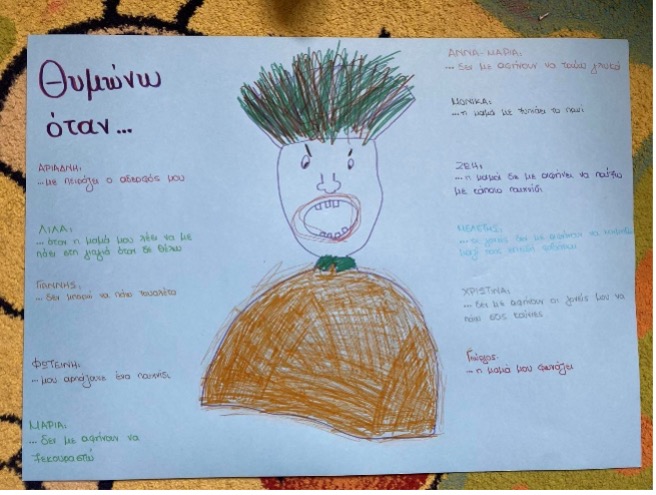 Θυμώνω
όταν...
ΑΡΙΑΔΝΗ:
...με πειράζει ο αδερφός μου
ΛΙΛΑ:
... όταν η μαμά μου λέει να με
πάει στη γιαγιά όταν δε θέλω
ΓΙΑΝΝΗΣ:
... δεν μπορώ να πάω τουαλέτα
ΦΩΤΕΙΝΗ:
... μου αρπάζουνε ένα παιχνίδι
ΜΑΡΙΑ:
... δεν με αφήνουν να
ξεκουραστώ
ΑΝΝΑ-ΜΑΡΙΑ:
... δεν με αφήνουν να τρώω γλυκά
ΜΟΝΙΚΑ:
... η μαμά με ξυπνάει το πρωί
ΖΩΗ:
... η μαμά δε με αφήνει να παίξω
με κάποιο παιχνίδι
ΜΕΛΕΤΗΣ:
... οι γονείς δεν με αφήνουν να
μαζί τους
ΧΡΙΣΤΙΝΑ:
... δεν με αφήνουν οι γονείς μου να
πάω στις κούνιες
Γιώργος:
... η μαμά μου φωνάζει